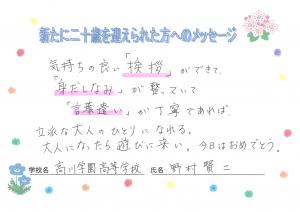 新たに二十歳を迎えられた方へのメッセージ
気持ちの良い「挨拶」ができて、
「身だしなみ」が整っていて
「言葉遣い」が丁寧であれば、
立派な大人のひとりになれる。
大人になったら遊びに来い。今日はおめでとう。
学校名 高川学園高等学校 氏名 野村賢二